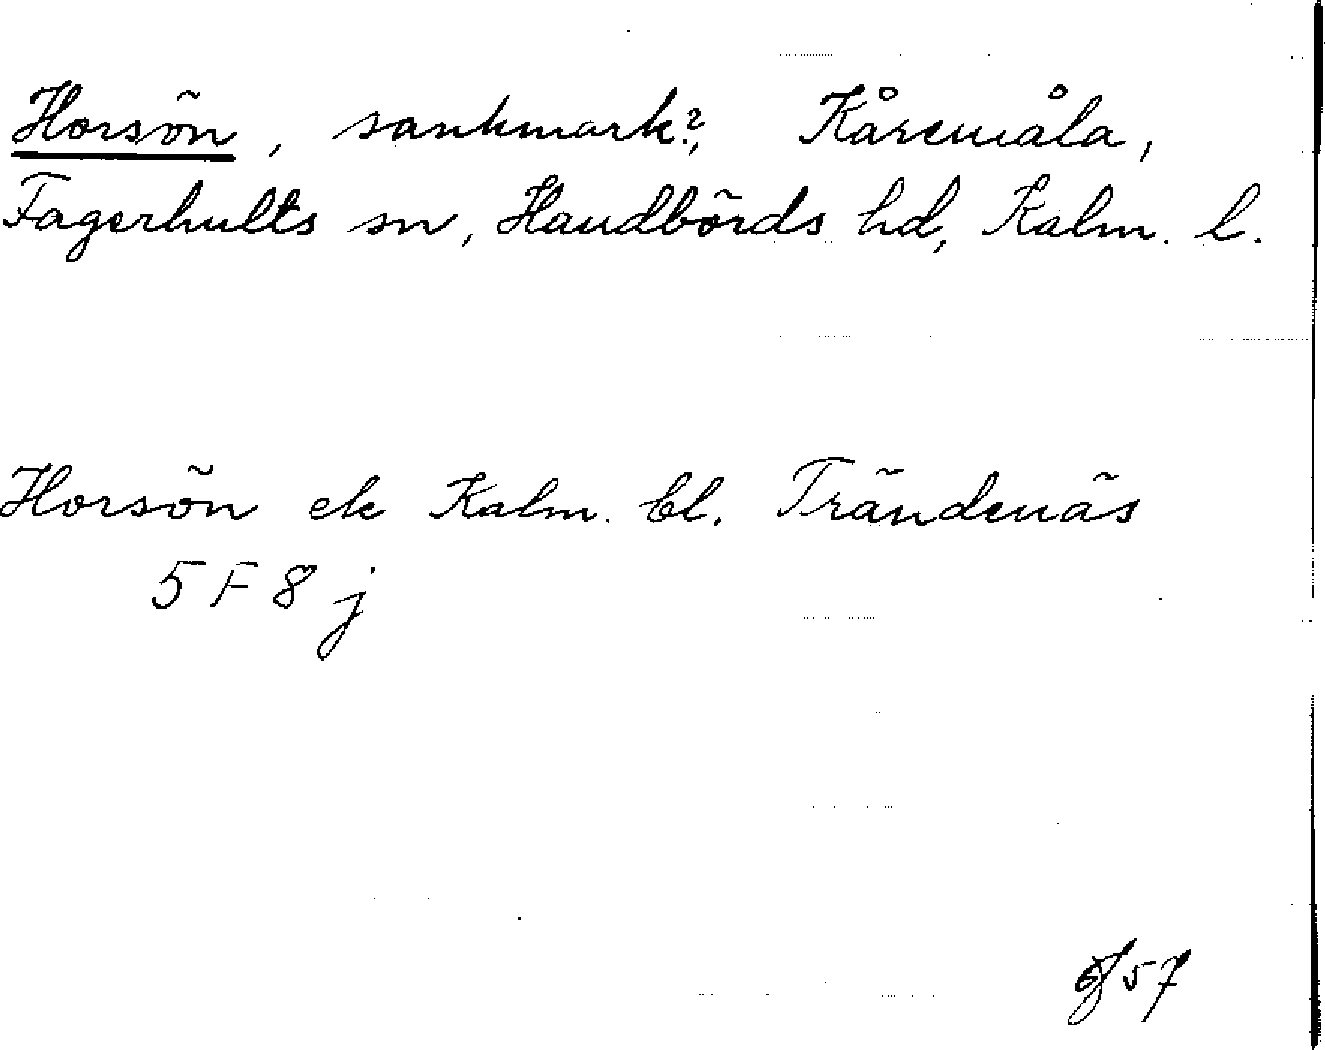 Horsön, sankmark?, Kåremåla,
Fagerhults sn, Handbörds hd, Kalm. l.
Horsön ek Kalm. bl. Trändenäs
5 F 8 j
57